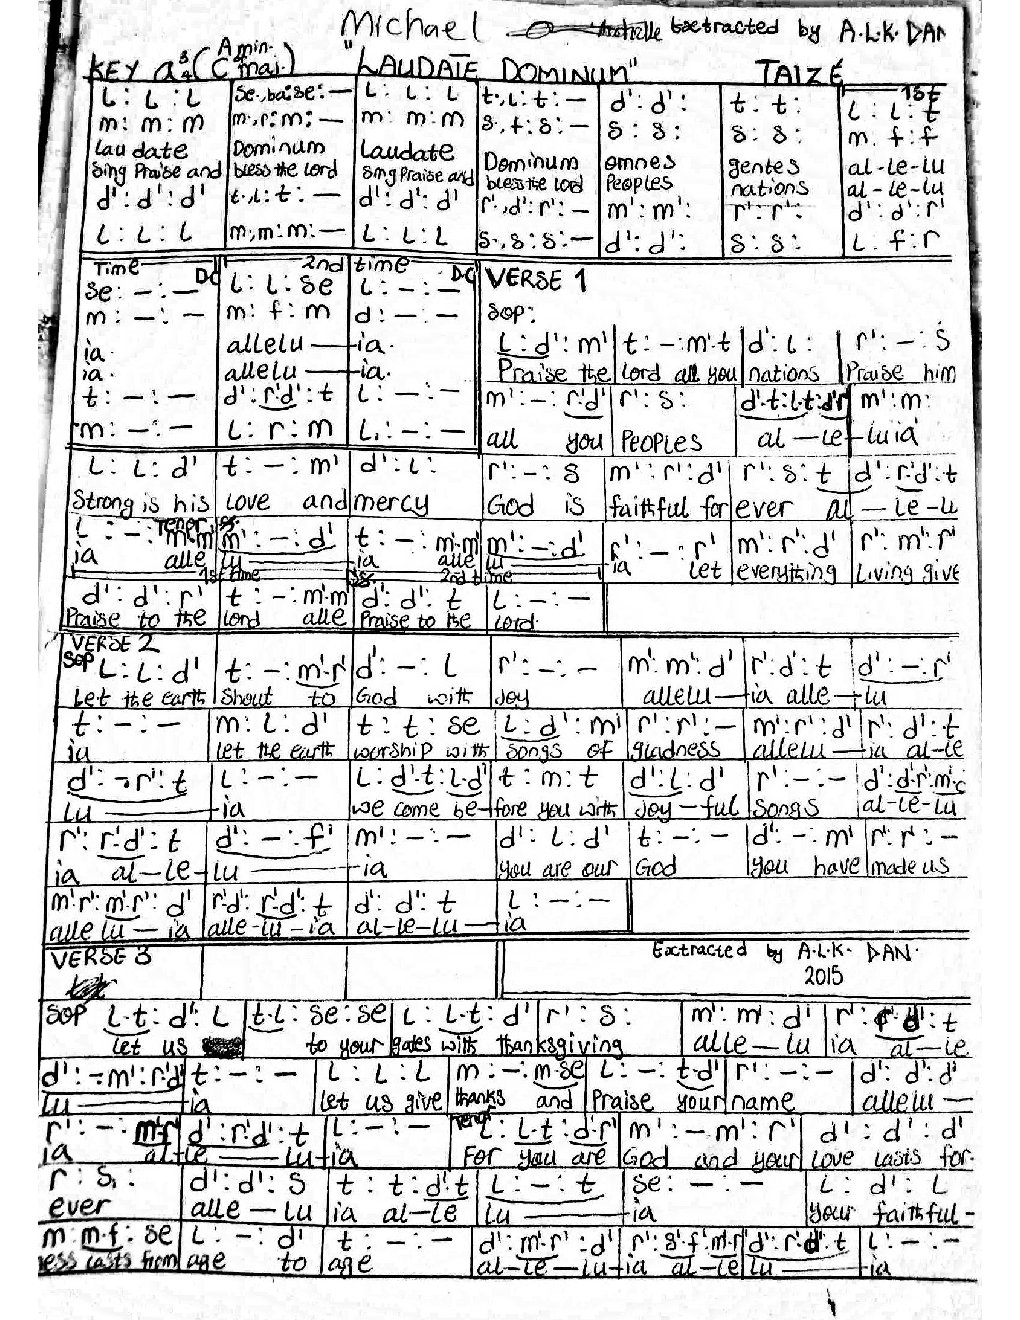 Michael Extracted by A.L.K. DAN
KEY a 3/4 (A min. C maj.) "LAUDATE DOMINUM" TAIZÉ
1st
L : L : L | se.,ba:se: — | L : L : L | t.,L: t: — | d': d': | t: t: | L : L : t
m: m: m | m.,r:m: — | m: m: m | s.,f:s: — | s: s: | s: s: | m. f: f
Laudate | Dominum | Laudate | Dominum | omnes | gentes | al-le-lu
Sing Praise and | bless the lord | Sing Praise and | bless the lord | Peoples | nations | al-le-lu
d': d': d' | t.,L: t: — | d': d': d' | r'.,d': r': — | m': m': | r': r': | d': d': r'
L : L : L | m.,m:m: — | L : L : L | s.,s:s: — | d': d': | s: s: | L: f: r
Time DC | 2nd time DC | VERSE 1
se: — : — | L: L: se | L: — : —
m: — : — | m: f: m | d: — : — | SOP:
ia. | allelu — ia.
ia. | allelu — ia.
t: — : — | d': r'.d': t | L: — : —
m: — : — | L: r: m | L,: — : —
L: d': m' | t: — : m'.t | d': L: | r': — : s
Praise the | Lord all you | nations | Praise him
m': — : r'.d' | r': s: | d'.t:L.t:d'.r' | m': m:
all you | Peoples | al — le — luia
L: L: d' | t: — : m' | d': L: | r': — : s | m': r': d' | r': s: t | d': r'.d': t
Strong is his | love and | mercy | God is | faithful for | ever al — le - lu
L: — : m'.m' | m': — : d' | t: — : m'.m' | m': — : d' | r': — : r' | m': r': d' | r': m': r'
ia alle | lu | ia alle | lu | ia let | everything | Living give
1st time | 2nd time
d': d': r' | t: — : m'.m' | d': d': t | L: — : —
Praise to the | lord alle | Praise to the | Lord.
VERSE 2
SOP L: L: d' | t: — : m'.r' | d': — : L | r': — : — | m': m': d' | r': d': t | d': — : r'
Let the earth | Shout to | God with | Joy | allelu — ia alle — lu
t: — : — | m: L: d' | t: t: se | L: d': m' | r': r': — | m': r': d' | r': d': t
ia | let the earth | worship with | songs of | gladness | allelu — ia al-le
d': — r': t | L: — : — | L: d'.t: L.d' | t: m: t | d': L: d' | r': — : — | d': d'.r': m'.
lu — ia | we come be - fore you with | Joy — ful | Songs | al-le-lu
r': r'.d': t | d': — : f' | m': — : — | d': L: d' | t: — : — | d': — : m' | r': r': —
ia al-le — lu — ia | you are our | God | you have | made us
m'.r': m'.r': d' | r'.d': r'.d': t | d': d': t | L: — : —
alle lu — ia | alle-lu-ia | al-le-lu — ia
VERSE 3 | Extracted by A.L.K. DAN.
2015
SOP L.t: d': L | t.L: se: se | L: L.t: d' | r': s: | m': m': d' | r': d': t
let us | to your | gates with thanksgiving | alle — lu | ia al-le
d': — m': r'.d' | t: — : — | L: L: L | m: — : m.se | L: — : t.d' | r': — : — | d': d': d'
lu — | ia | let us give | thanks and | Praise your | name | allelu —
r': — : m'.r' | d': r'.d': t | L: — : — | L: L.t: d'.r' | m': — m': r' | d': d': d'
ia al-le — lu-ia | For you are | God and your | love lasts for-
r: s,: | d': d': s | t: t: d'.t | L: — : t | se: — : — | L: d': L
ever | alle — lu | ia al-le | lu — ia | your faithful-
m: m.f: se | L: — : d' | t: — : — | d': m'.r': d' | r': s'.f': m'.r' | d': r'.d': t | L: — : —
ness lasts from | age to | age | al-le-lu-ia al-le | lu — ia